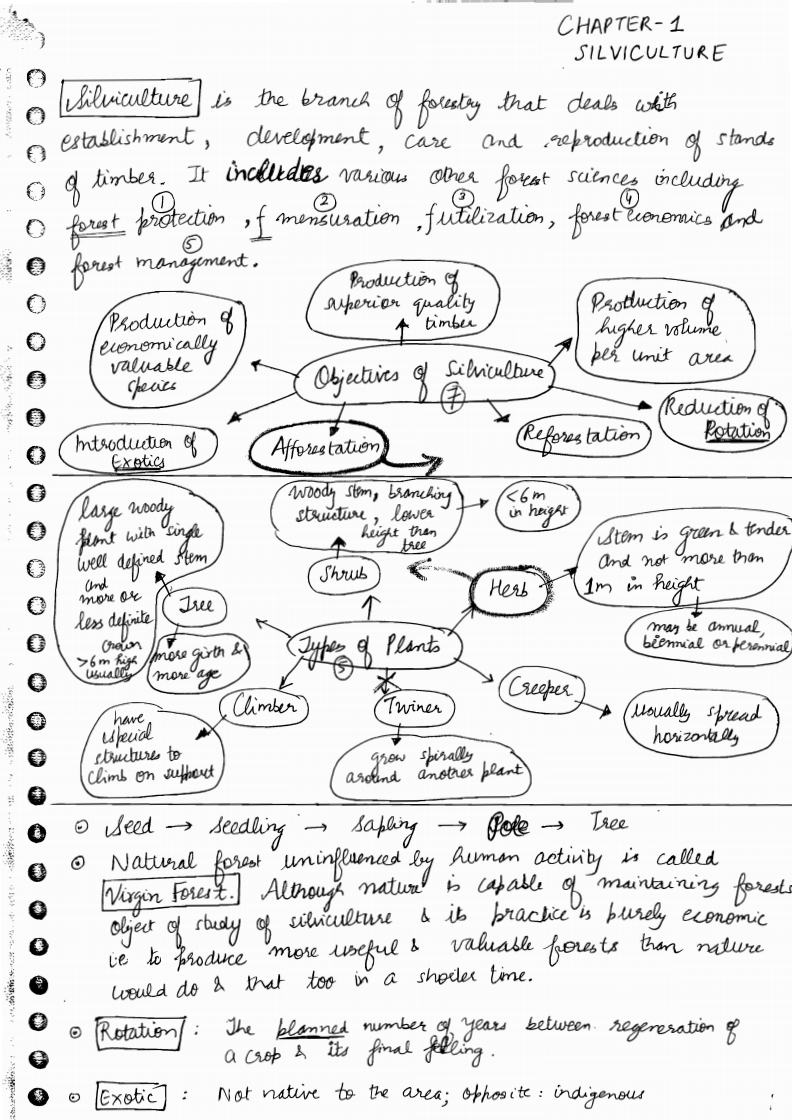 CHAPTER-1
SILVICULTURE
Silviculture is the branch of forestry that deals with
establishment, development, care and reproduction of stands
of timber. It includes various other forest sciences including
① ② ③ ④
forest protection, f mensuration, f utilization, forest economics and
⑤
forest management.
Production of
superior quality
timber
Production of
economically
valuable
species
Production of
higher volume
per unit area
Objectives of Silviculture
⑦
Reduction of
Rotation
Introduction of
Exotics
Afforestation
Reforestation
large woody
plant with single
well defined stem
and
more or
less definite
crown
>6m high
usually
Woody stem, branching
structure, lower
height than
tree
<6m
in height
Stem is green & tender
and not more than
1m in height
Shrub
Herb
Tree
may be annual,
biennial or perennial
more girth &
more age
Types of Plants
⑤
Climber
Twiner
Creeper
have
special
structures to
climb on support
grow spirally
around another plant
usually spread
horizontally
⊙ Seed → seedling → sapling → Pole → Tree
⊙ Natural forest uninfluenced by human activity is called
Virgin Forest. Although nature is capable of maintaining forests
object of study of silviculture & its practice is purely economic
i.e to produce more useful & valuable forests than nature
would do & that too in a shorter time.
⊙ Rotation : The planned number of years between regeneration of
a crop & its final felling.
⊙ Exotic : Not native to the area; opposite: indigenous